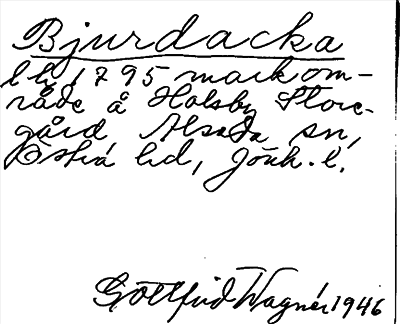 Bjurdacka
l h, 1795 markom-
råde å Holsby Store-
gård Alseda sn,
Östra hd, Jönk. l.
Gottfrid Wagnér 1946